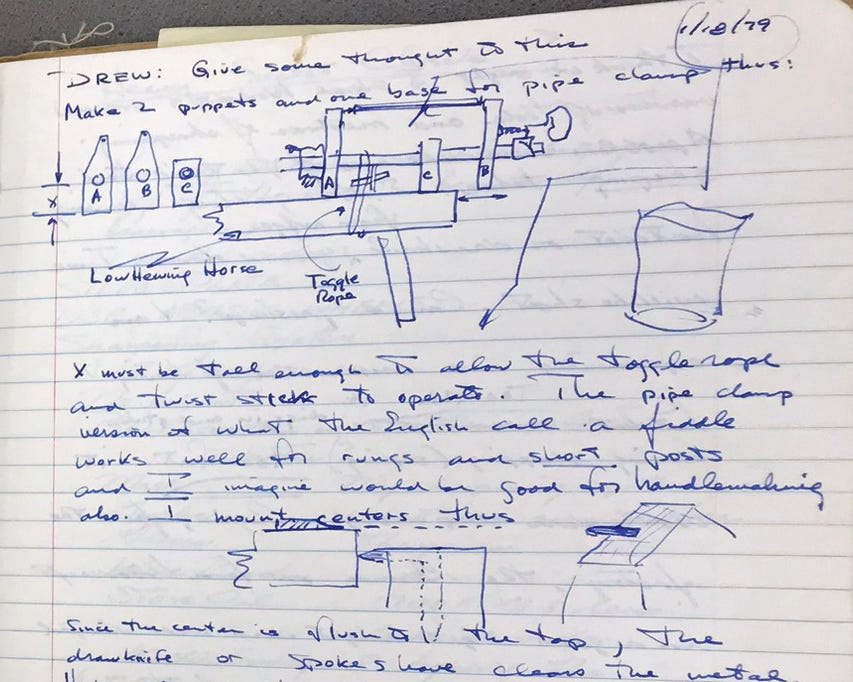 1/18/79
DREW: Give some thought to this
Make 2 puppets and one base for pipe clamp thus:
A B C
X
A C B
Low Hewing Horse
Toggle
Rope
X must be tall enough to allow the toggle rope
and twist stick to operate. The pipe clamp
version of what the English call a fiddle
works well for rungs and short posts
and I imagine would be good for handlemaking
also. I mount centers thus
Since the center is flush to the top, the
drawknife or spokeshave clears the metal.